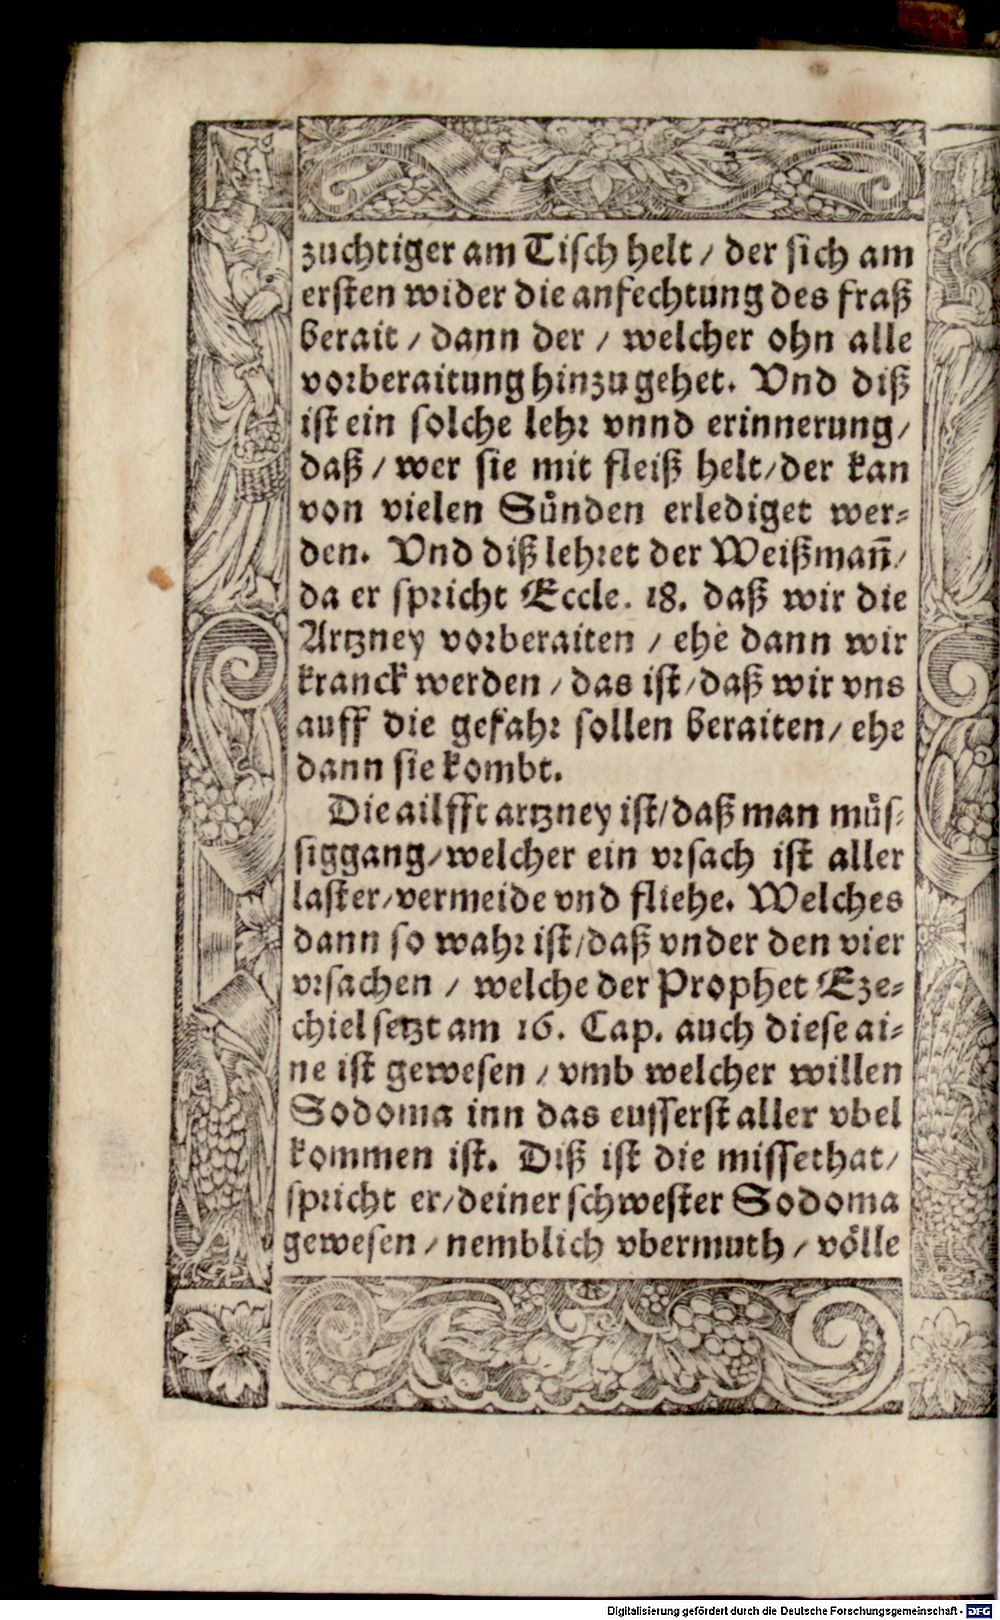 zuchtiger am Tisch helt / der sich am
ersten wider die anfechtung des fraß
berait / dann der / welcher ohn alle
vorberaitung hinzu gehet. Vnd diß
ist ein solche lehr vnnd erinnerung /
daß / wer sie mit fleiß helt / der kan
von vielen Sůnden erlediget wer⸗
den. Vnd diß lehret der Weißmañ /
da er spricht Eccle. 18. daß wir die
Artzney vorberaiten / ehe dann wir
kranck werden / das ist / daß wir vns
auff die gefahr sollen beraiten / ehe
dann sie kombt.
Die ailfft artzney ist / daß man můs⸗
siggang / welcher ein vrsach ist aller
laster / vermeide vnd fliehe. Welches
dann so wahr ist / daß vnder den vier
vrsachen / welche der Prophet Eze⸗
chiel setzt am 16. Cap. auch diese ai⸗
ne ist gewesen / vmb welcher willen
Sodoma inn das eusserst aller vbel
kommen ist. Diß ist die missethat /
spricht er / deiner schwester Sodoma
gewesen / nemblich vbermuth / völle
Digitalisierung gefördert durch die Deutsche Forschungsgemeinschaft - DFG